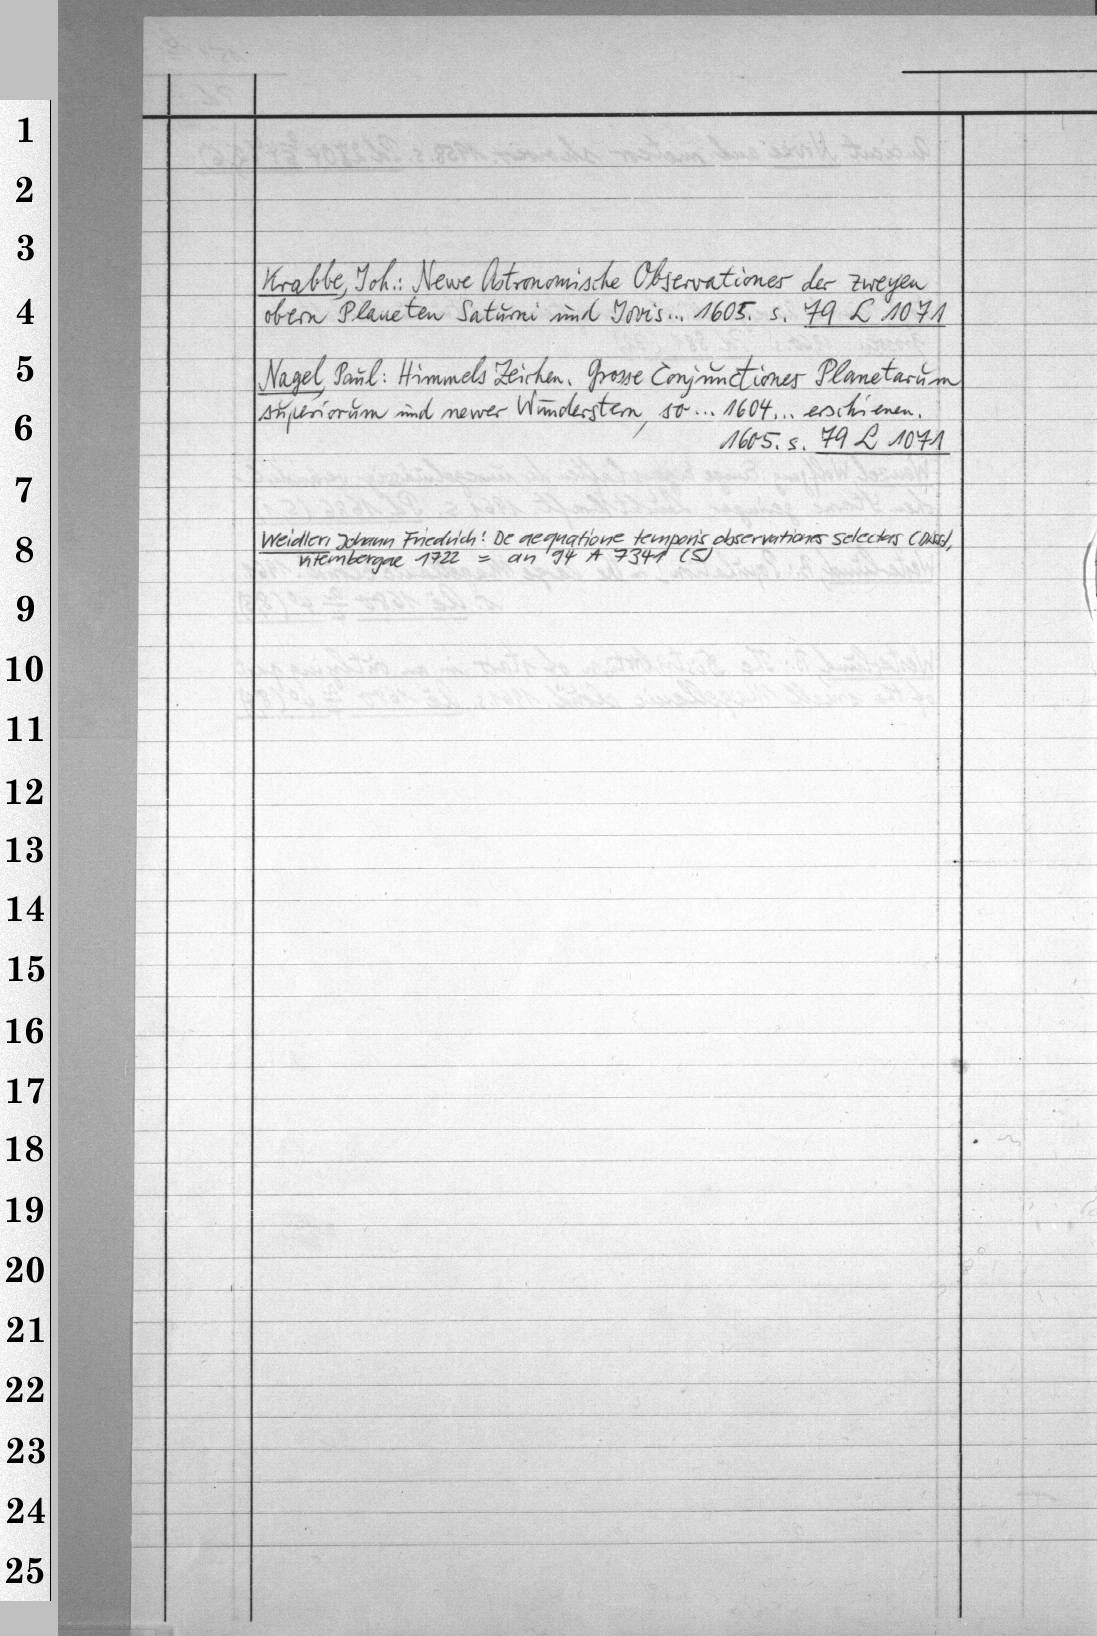 1
2
3
4
5
6
7
8
9
10
11
12
13
14
15
16
17
18
19
20
21
22
23
24
25
Krabbe, Joh.: Newe Astronomische Observationes der zweyen
obern Planeten Saturni und Jovis... 1605. s. 79 L 1071
Nagel, Paul: Himmels Zeichen. Grosse Conjunctiones Planetarum
superiorum und newer Wunderstern, so... 1604... erschienen.
1605. s. 79 L 1071
Weidleri Johann Friedrich: De aequatione temporis observationes selectas (Diss),
Vitembergae 1722 = an 94 A 7341 (5)